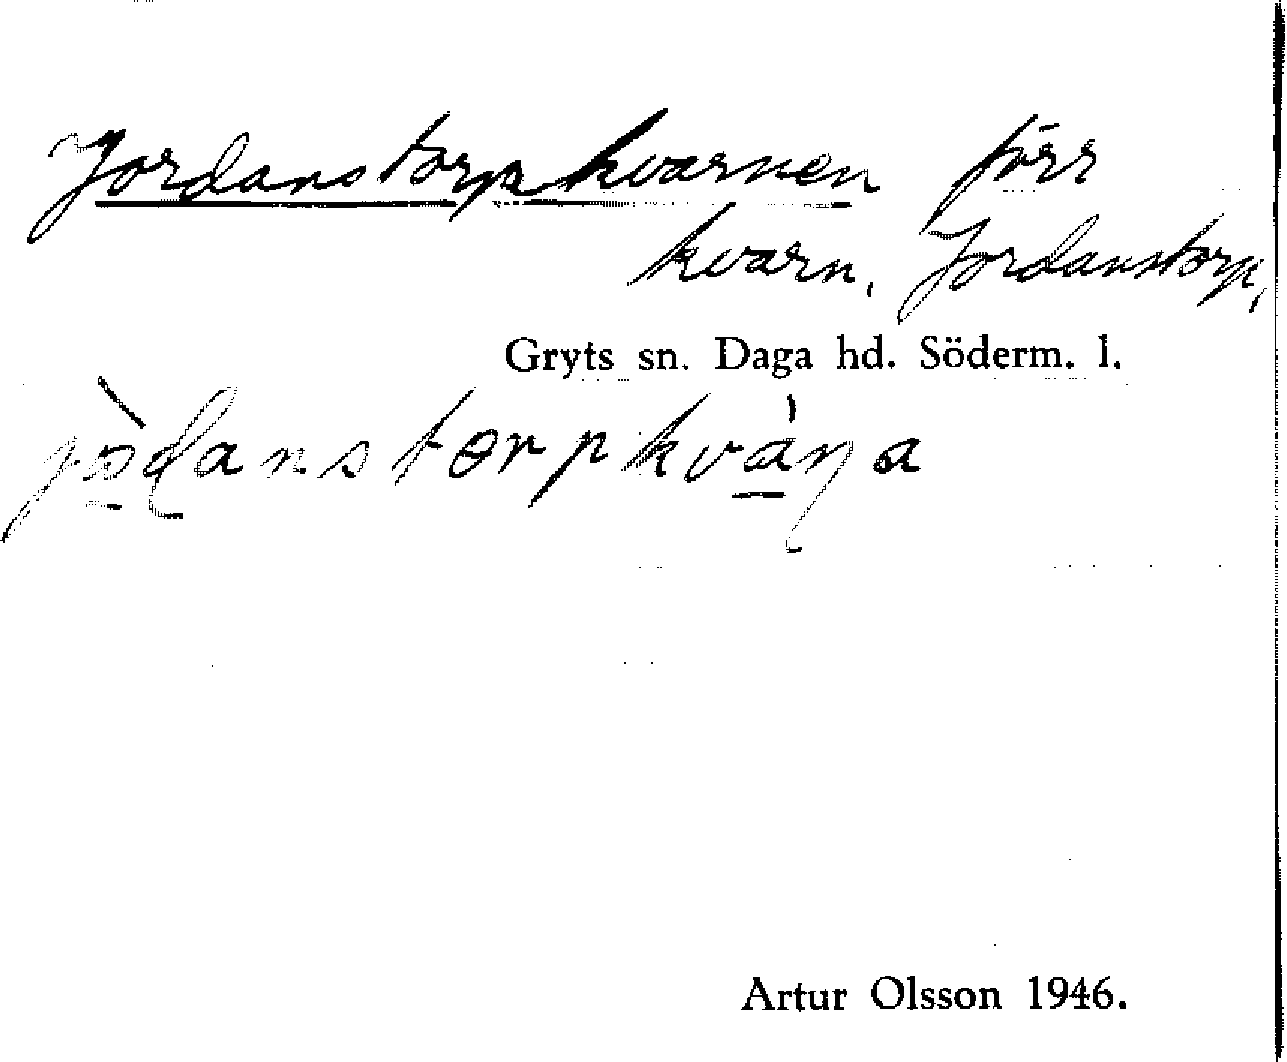 Jordanstorpkvarnen förr
kvarn, Jordanstorp,
Gryts sn. Daga hd. Söderm. l.
jòdanstorpkvána
Artur Olsson 1946.